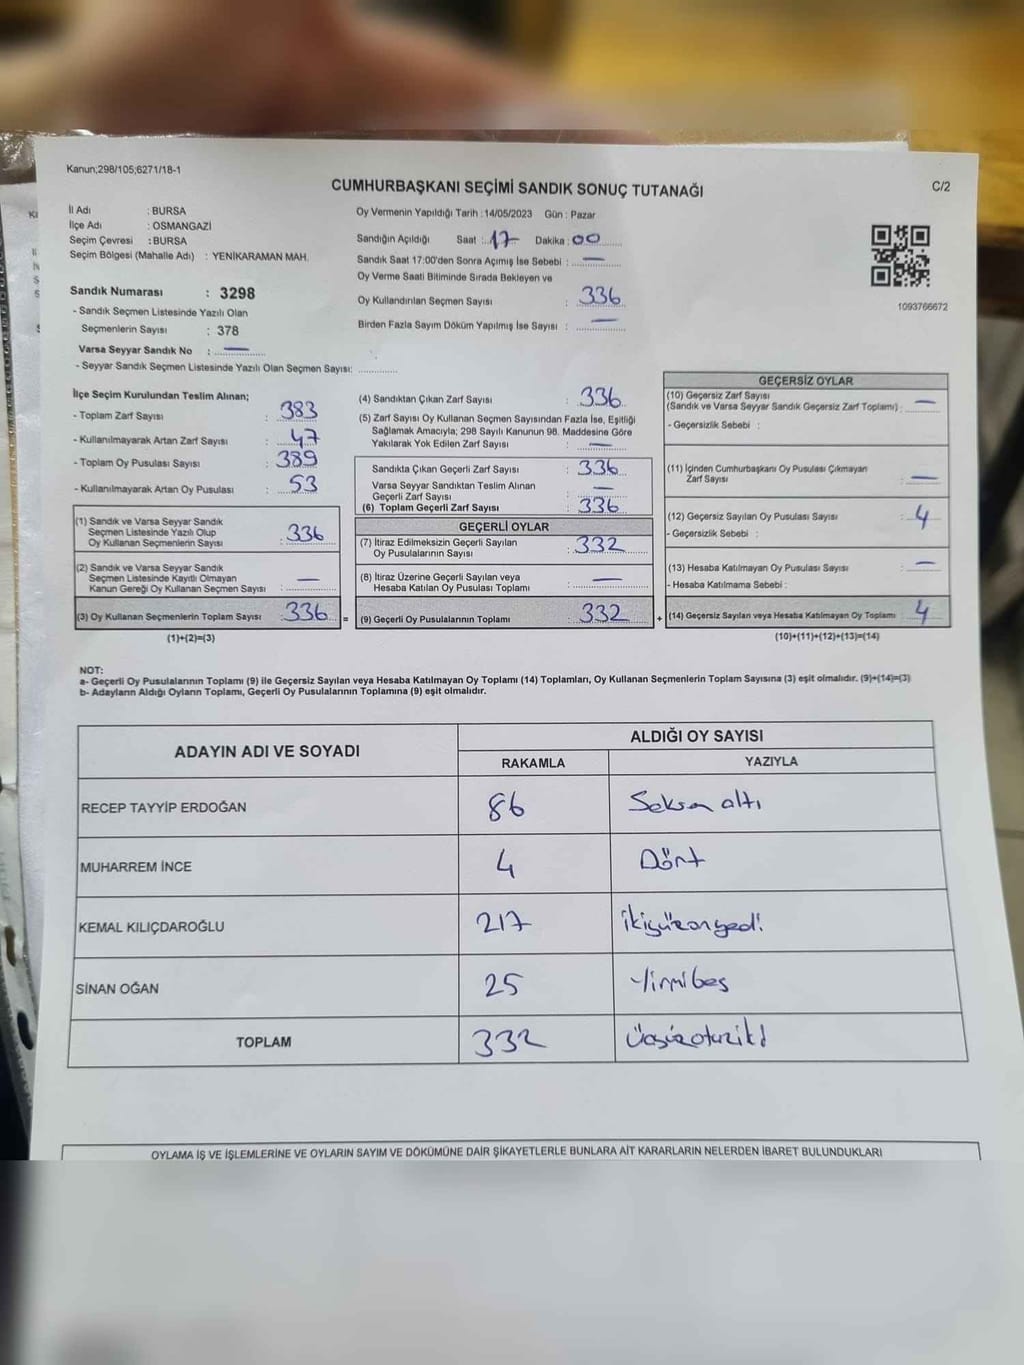 Kanun;298/105;6271/18-1
CUMHURBAŞKANI SEÇİMİ SANDIK SONUÇ TUTANAĞI
C/2
İl Adı : BURSA
İlçe Adı : OSMANGAZİ
Seçim Çevresi : BURSA
Seçim Bölgesi (Mahalle Adı) : YENİKARAMAN MAH.
Sandık Numarası : 3298
- Sandık Seçmen Listesinde Yazılı Olan
Seçmenlerin Sayısı : 378
Varsa Seyyar Sandık No : —
- Seyyar Sandık Seçmen Listesinde Yazılı Olan Seçmen Sayısı: ..............
Oy Vermenin Yapıldığı Tarih : 14/05/2023 Gün : Pazar
Sandığın Açıldığı Saat : 17 Dakika : 00
Sandık Saat 17:00'den Sonra Açımış İse Sebebi : —
Oy Verme Saati Bitiminde Sırada Bekleyen ve
Oy Kullandırılan Seçmen Sayısı : 336
Birden Fazla Sayım Döküm Yapılmış İse Sayısı : —
1093766672
İlçe Seçim Kurulundan Teslim Alınan;
- Toplam Zarf Sayısı : 383
- Kullanılmayarak Artan Zarf Sayısı : 47
- Toplam Oy Pusulası Sayısı : 389
- Kullanılmayarak Artan Oy Pusulası : 53
(1) Sandık ve Varsa Seyyar Sandık
Seçmen Listesinde Yazılı Olup
Oy Kullanan Seçmenlerin Sayısı : 336
(2) Sandık ve Varsa Seyyar Sandık
Seçmen Listesinde Kayıtlı Olmayan
Kanun Gereği Oy Kullanan Seçmen Sayısı : —
(3) Oy Kullanan Seçmenlerin Toplam Sayısı : 336
(1)+(2)=(3)
=
(4) Sandıktan Çıkan Zarf Sayısı : 336
(5) Zarf Sayısı Oy Kullanan Seçmen Sayısından Fazla İse, Eşitliği
Sağlamak Amacıyla; 298 Sayılı Kanunun 98. Maddesine Göre
Yakılarak Yok Edilen Zarf Sayısı : —
Sandıkta Çıkan Geçerli Zarf Sayısı : 336
Varsa Seyyar Sandıktan Teslim Alınan
Geçerli Zarf Sayısı : —
(6) Toplam Geçerli Zarf Sayısı : 336
GEÇERLİ OYLAR
(7) İtiraz Edilmeksizin Geçerli Sayılan
Oy Pusulalarının Sayısı : 332
(8) İtiraz Üzerine Geçerli Sayılan veya
Hesaba Katılan Oy Pusulası Toplamı : —
(9) Geçerli Oy Pusulalarının Toplamı : 332
+
GEÇERSİZ OYLAR
(10) Geçersiz Zarf Sayısı
(Sandık ve Varsa Seyyar Sandık Geçersiz Zarf Toplamı) : —
- Geçersizlik Sebebi :
(11) İçinden Cumhurbaşkanı Oy Pusulası Çıkmayan
Zarf Sayısı : —
(12) Geçersiz Sayılan Oy Pusulası Sayısı : 4
- Geçersizlik Sebebi :
(13) Hesaba Katılmayan Oy Pusulası Sayısı : —
- Hesaba Katılmama Sebebi :
(14) Geçersiz Sayılan veya Hesaba Katılmayan Oy Toplamı : 4
(10)+(11)+(12)+(13)=(14)
NOT:
a- Geçerli Oy Pusulalarının Toplamı (9) ile Geçersiz Sayılan veya Hesaba Katılmayan Oy Toplamı (14) Toplamları, Oy Kullanan Seçmenlerin Toplam Sayısına (3) eşit olmalıdır. (9)+(14)=(3)
b- Adayların Aldığı Oyların Toplamı, Geçerli Oy Pusulalarının Toplamına (9) eşit olmalıdır.
ADAYIN ADI VE SOYADI
ALDIĞI OY SAYISI
RAKAMLA YAZIYLA
RECEP TAYYİP ERDOĞAN 86 Seksen altı
MUHARREM İNCE 4 Dört
KEMAL KILIÇDAROĞLU 217 ikiyüzonyedi
SİNAN OĞAN 25 Yirmibeş
TOPLAM 332 Üçyüzotuziki
OYLAMA İŞ VE İŞLEMLERİNE VE OYLARIN SAYIM VE DÖKÜMÜNE DAİR ŞİKAYETLERLE BUNLARA AİT KARARLARIN NELERDEN İBARET BULUNDUKLARI